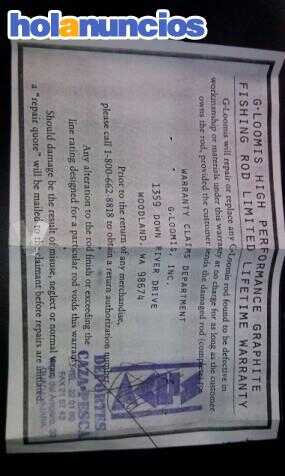 holanuncios
G-LOOMIS HIGH PERFORMANCE GRAPHITE
FISHING ROD LIMITED LIFETIME WARRANTY
G-Loomis will repair or replace any G-Loomis rod found to be defective in
workmanship or materials under this warranty at no charge for as long as the customer
owns the rod, provided the customer sends the damaged rod (complete) to
WARRANTY CLAIMS DEPARTMENT
G-LOOMIS, INC.
1359 DOWN RIVER DRIVE
WOODLAND, WA 98674
Prior to the return of any merchandise,
please call 1-800-662-8818 to obtain a return authorization
Any alteration to the rod finish or exceeding the
line rating designed for a particular rod voids this warranty.
Should damage be the result of misuse, neglect or normal wear,
a "repair quote" will be mailed to the claimant before repairs are initiated.
DEPORTES
CAZA-PESCA